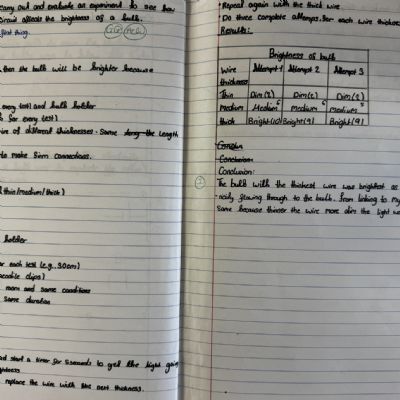 carry out and evaluate an experiment to see how
affects the brightness of a bulb.
first thing.
then the bulb will be brighter because
every test) and bulb holder
for every test)
wire of different thicknesses - Same length
to make firm connections.
(thin/medium/thick)
holder
for each test (e.g. 30cm)
crocodile clips)
room and same conditions
same duration
and start a timer for 5 seconds to get the light going
replace the wire with the next thickness.
• Repeat again with the thick wire
• Do three complete attempts for each wire thickness
Results:
Brightness of bulb
Wire thickness Attempt 1 Attempt 2 Attempt 3
Thin Dim (2) Dim (2) Dim (2)
Medium Medium 6 medium 6 medium 5
thick Bright (10) Bright (9) Bright (9)
Conclusion
Conclusion:
The bulb with the thickest wire was brightest as
flowing through to the bulb. From linking to my
same because thinner the wire more dim the light